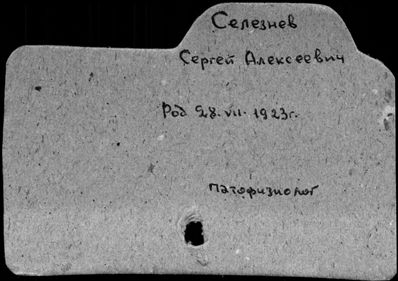 Селезнев
Сергей Алексеевич
Род 28.VII.1923г.
патофизиолог